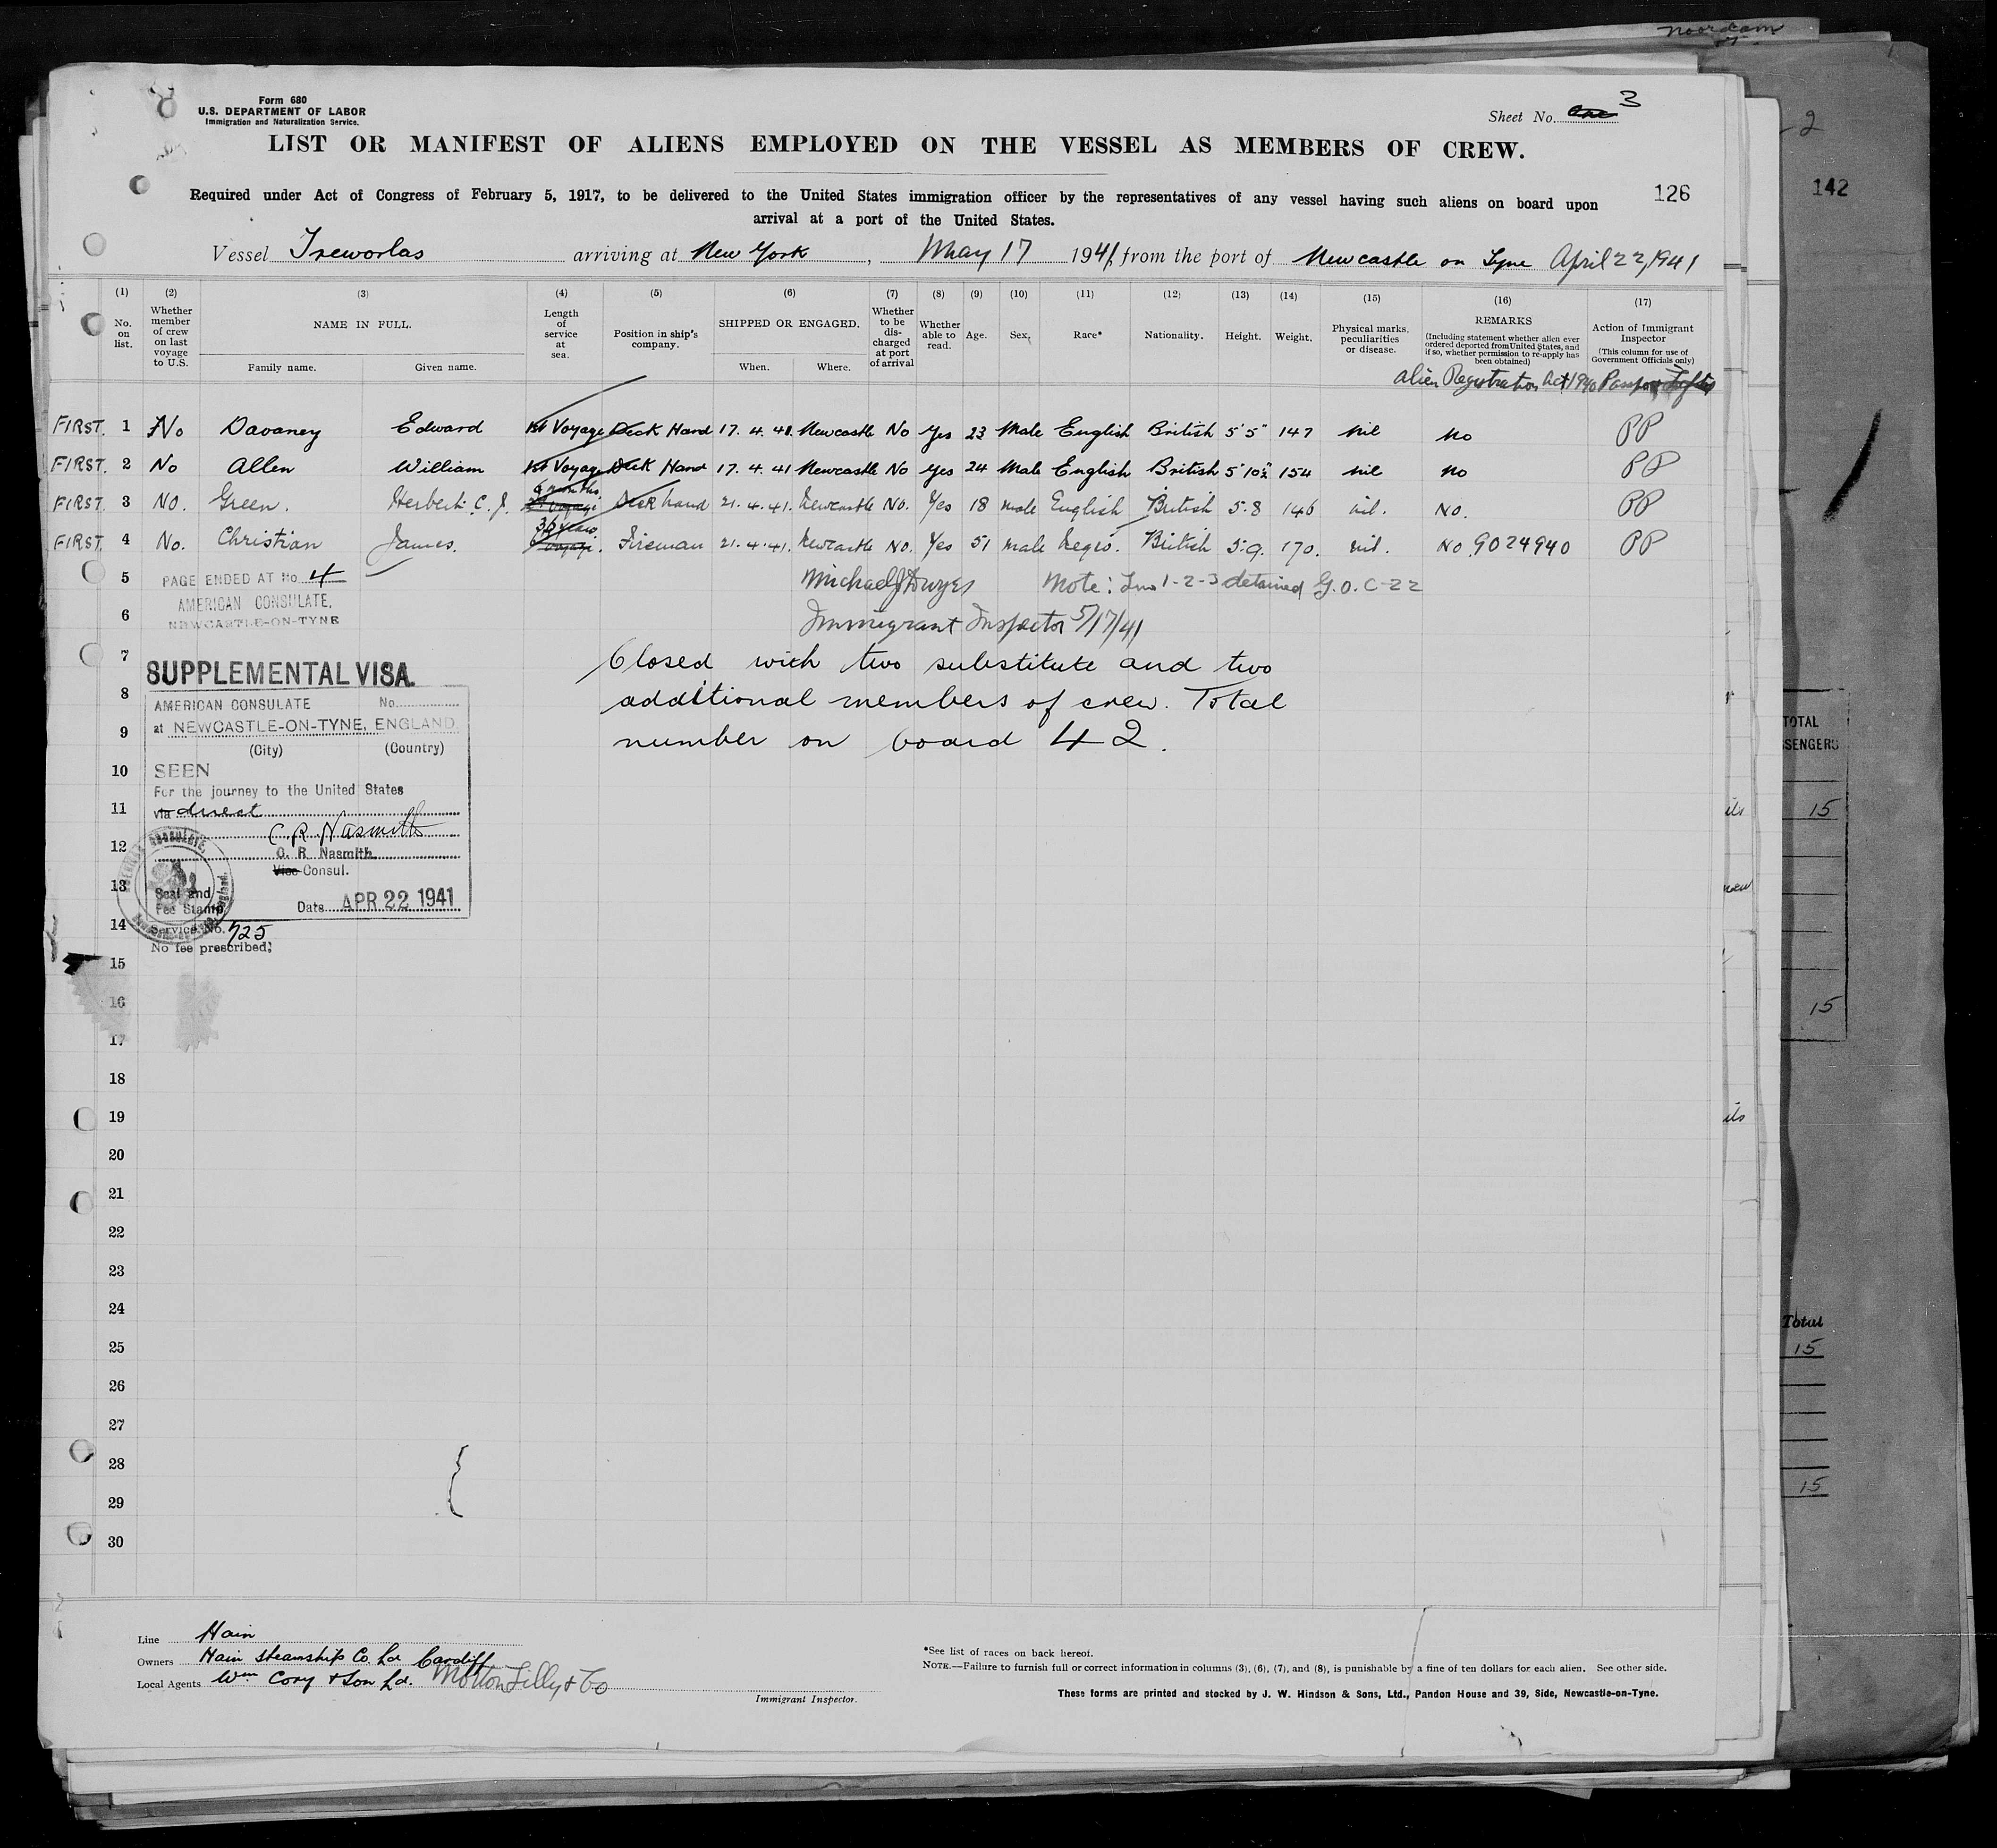 Noordam
Form 680
U.S. DEPARTMENT OF LABOR
Immigration and Naturalization Service.
Sheet No. 3
LIST OR MANIFEST OF ALIENS EMPLOYED ON THE VESSEL AS MEMBERS OF CREW.
2
Required under Act of Congress of February 5, 1917, to be delivered to the United States immigration officer by the representatives of any vessel having such aliens on board upon
arrival at a port of the United States.
126
142
Vessel Treworlas arriving at New York, May 17 1941, from the port of Newcastle on Tyne April 22, 1941
(1) (2) (3) (4) (5) (6) (7) (8) (9) (10) (11) (12) (13) (14) (15) (16) (17)
No. on list.
Whether member of crew on last voyage to U.S.
NAME IN FULL.
Family name. Given name.
Length of service at sea.
Position in ship's company.
SHIPPED OR ENGAGED.
When. Where.
Whether to be discharged at port of arrival
Whether able to read.
Age.
Sex.
Race*
Nationality.
Height.
Weight.
Physical marks, peculiarities or disease.
REMARKS
(Including statement whether alien ever ordered deported from United States, and if so, whether permission to re-apply has been obtained)
Action of Immigrant Inspector
(This column for use of Government Officials only)
Alien Registration Act 1940
FIRST. 1 No Davaney Edward 1st Voyage Deck Hand 17. 4. 41. Newcastle No Yes 23 Male English British 5'5" 147 nil No PP
FIRST. 2 No Allen William 1st Voyage Deck Hand 17. 4. 41 Newcastle No Yes 24 Male English British 5'10½" 154 nil No PP
FIRST. 3 No. Green. Herbert C. J. 6 months Deck hand 21. 4. 41. Newcastle No. Yes 18 male English British 5.8 146 nil. No. PP
FIRST. 4 No. Christian James. 36 years. Fireman 21. 4. 41. Newcastle No. Yes 51 male Negro. British 5.9. 170. nil. No 9024940 PP
5 PAGE ENDED AT No. 4
AMERICAN CONSULATE,
NEWCASTLE-ON-TYNE
Michael J Dwyer
Immigrant Inspector 5/17/41
Note: 1-2-3 detained G.O. C-22
6
7
Closed with two substitute and two
additional members of crew. Total
number on board 42.
SUPPLEMENTAL VISA.
8
AMERICAN CONSULATE No.
at NEWCASTLE-ON-TYNE, ENGLAND.
9
(City) (Country)
10
SEEN
For the journey to the United States
11
via direct
C. R. Nasmith
12
C. R. Nasmith
Vice Consul.
13
Seal and
Fee Stamp
Date APR 22 1941
14
Service No. 725
No fee prescribed.
15
16
17
18
19
20
21
22
23
24
25
26
27
28
29
30
TOTAL
15
15
Total
15
15
Line Hain
Owners Hain Steamship Co. Ld Cardiff
Local Agents Wm Cory & Son Ld. Motton Lilly & Co
Immigrant Inspector.
*See list of races on back hereof.
NOTE.—Failure to furnish full or correct information in columns (3), (6), (7), and (8), is punishable by a fine of ten dollars for each alien. See other side.
These forms are printed and stocked by J. W. Hindson & Sons, Ltd., Pandon House and 39, Side, Newcastle-on-Tyne.